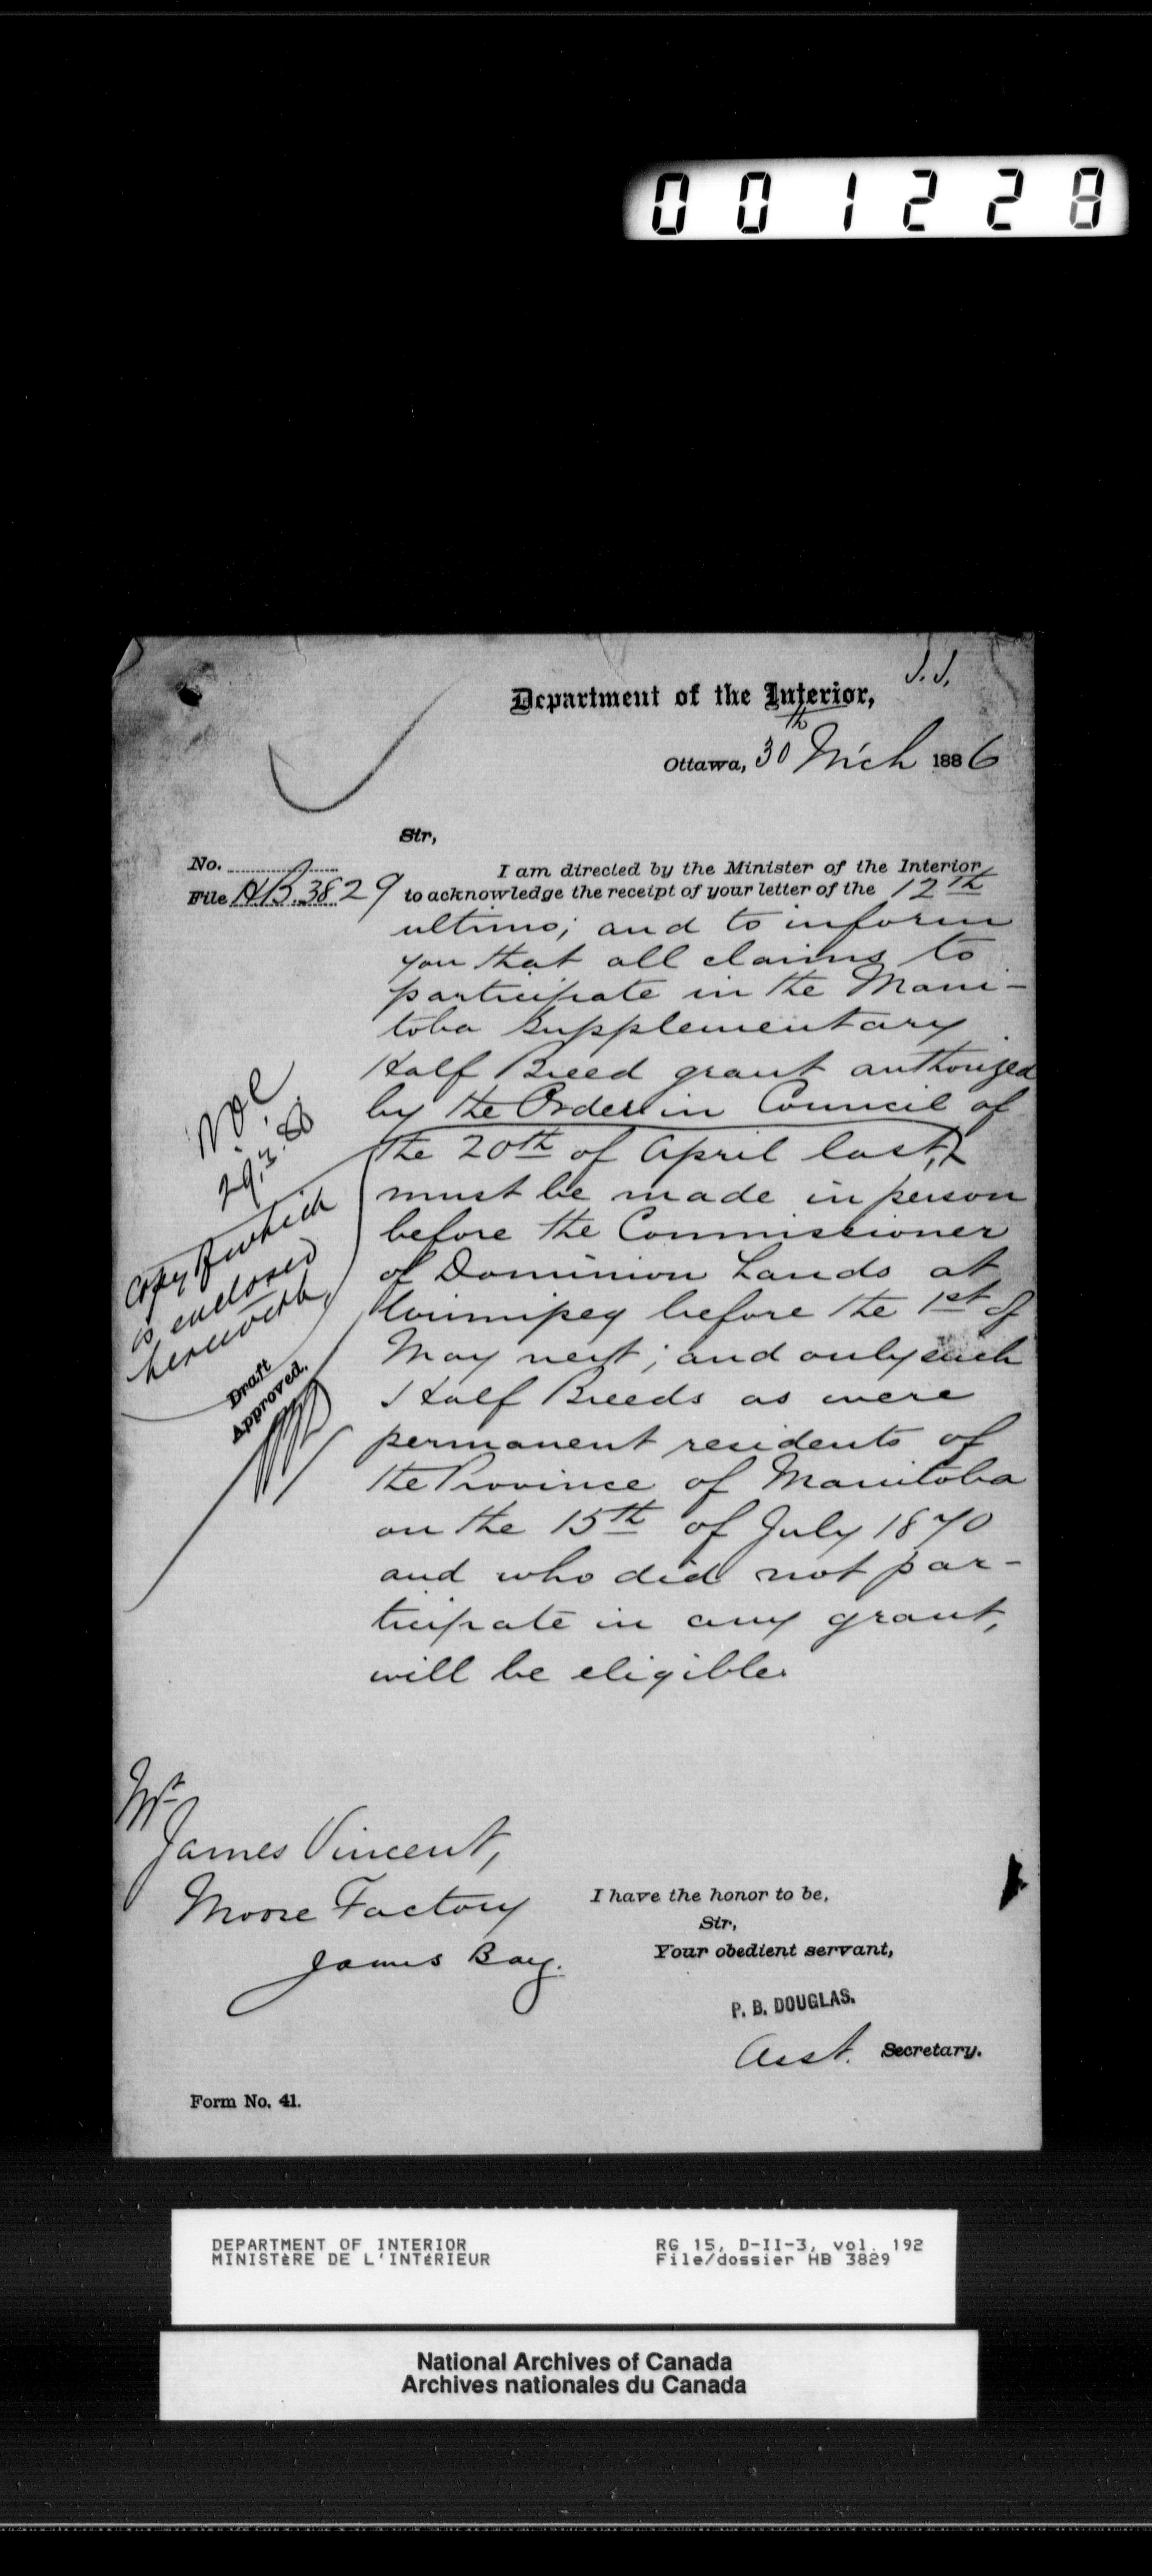 001228
J.J.
Department of the Interior,
Ottawa, 30th Mch 1886
Sir,
No.
File HB.3829
I am directed by the Minister of the Interior
to acknowledge the receipt of your letter of the 12th
ultimo; and to inform
you that all claims to
participate in the Mani-
toba Supplementary
Half Breed grant authorized
by the Order in Council of
the 20th of April last,
must be made in person
before the Commissioner
of Dominion Lands at
Winnipeg before the 1st of
May next; and only such
Half Breeds as were
permanent residents of
the Province of Manitoba
on the 15th of July 1870
and who did not par-
ticipate in any grant,
will be eligible.
29.3.86
Copy of which
is enclosed
herewith,
Draft
Approved.
Mr
James Vincent,
Moose Factory
James Bay.
I have the honor to be,
Sir,
Your obedient servant,
P. B. DOUGLAS.
Asst. Secretary.
Form No. 41.
DEPARTMENT OF INTERIOR
MINISTÈRE DE L'INTÉRIEUR
RG 15, D-II-3, vol. 192
File/dossier HB 3829
National Archives of Canada
Archives nationales du Canada